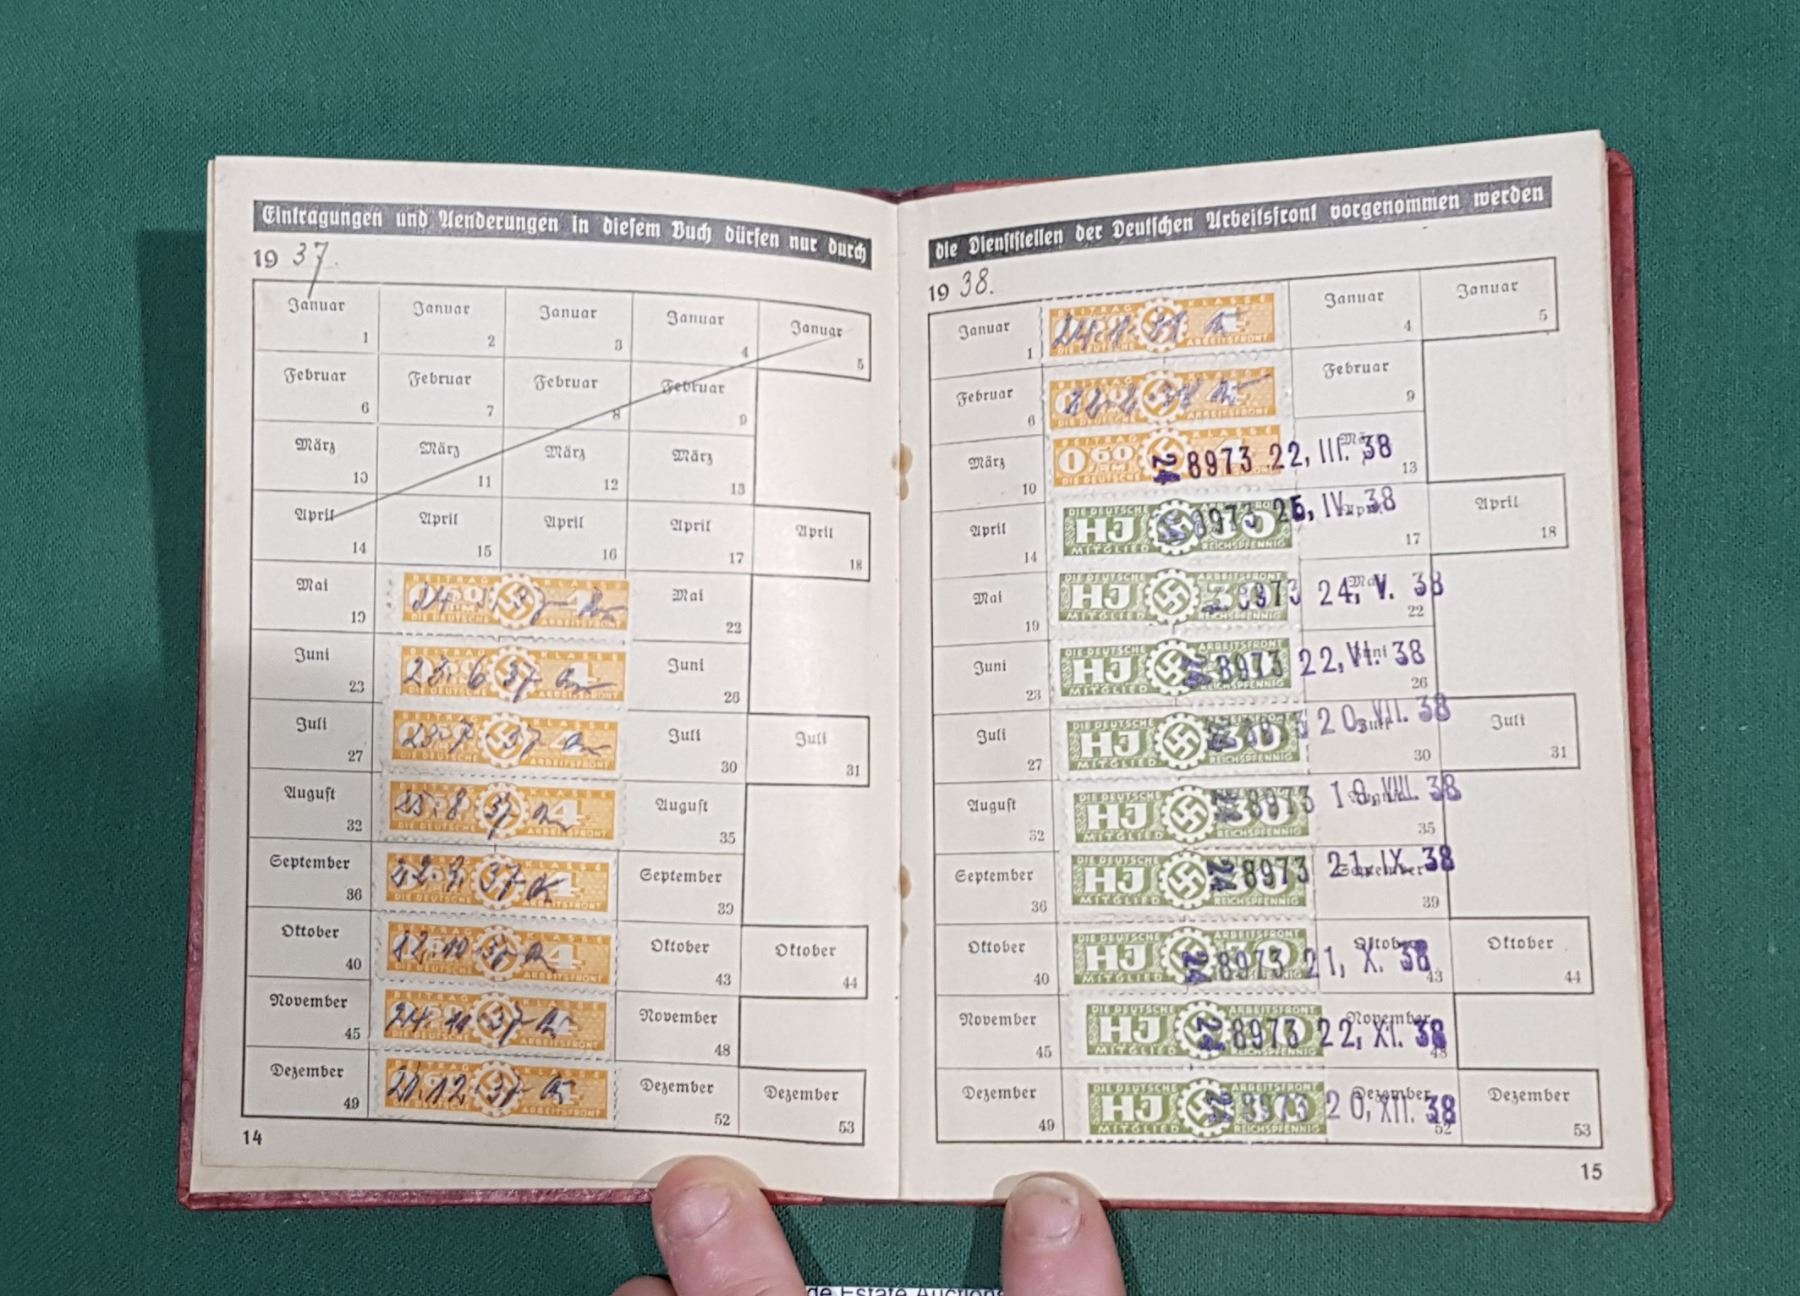 Eintragungen und Aenderungen in diesem Buch dürfen nur durch
19 37.
Januar 1 Januar 2 Januar 3 Januar 4 Januar 5
Februar 6 Februar 7 Februar 8 Februar 9
März 10 März 11 März 12 März 13
April 14 April 15 April 16 April 17 April 18
Mai 19 BEITRAG KLASSE 4 DIE DEUTSCHE ARBEITSFRONT Mai 22
Juni 23 BEITRAG KLASSE 4 DIE DEUTSCHE ARBEITSFRONT 23. 6 37 Juni 26
Juli 27 BEITRAG KLASSE 4 DIE DEUTSCHE ARBEITSFRONT 23. 7 37 Juli 30 Juli 31
August 32 4 DIE DEUTSCHE ARBEITSFRONT 37 August 35
September 36 BEITRAG KLASSE 4 DIE DEUTSCHE ARBEITSFRONT 22. 9. 37 September 39
Oktober 40 BEITRAG KLASSE 4 DIE DEUTSCHE ARBEITSFRONT 12. 10 37 Oktober 43 Oktober 44
November 45 BEITRAG KLASSE DIE DEUTSCHE ARBEITSFRONT 24. 11 37 November 48
Dezember 49 BEITRAG KLASSE DIE DEUTSCHE ARBEITSFRONT 21. 12. 37 Dezember 52 Dezember 53
14
die Dienststellen der Deutschen Arbeitsfront vorgenommen werden
19 38.
Januar 1 BEITRAG KLASSE 4 DIE DEUTSCHE ARBEITSFRONT Januar 4 Januar 5
Februar 6 BEITRAG KLASSE DIE DEUTSCHE ARBEITSFRONT Februar 9
März 10 BEITRAG KLASSE 0,60 RM 4 24 8973 22, III. 38 März 13
April 14 DIE DEUTSCHE HJ MITGLIED REICHSPFENNIG 8973 26, IV. 38 April 17 April 18
Mai 19 DIE DEUTSCHE ARBEITSFRONT HJ 30 MITGLIED 8973 24, V. 38 Mai 22
Juni 23 DIE DEUTSCHE ARBEITSFRONT HJ MITGLIED REICHSPFENNIG 24 8973 22, VI. 38 Juni 26
Juli 27 DIE DEUTSCHE ARBEITSFRONT HJ 30 MITGLIED REICHSPFENNIG 20, VII. 38 Juli 30 Juli 31
August 32 DIE DEUTSCHE HJ 30 MITGLIED REICHSPFENNIG 24 8973 18, VIII. 38 August 35
September 36 DIE DEUTSCHE HJ MITGLIED REICHSPFENNIG 24 8973 21, IX. 38 September 39
Oktober 40 DIE DEUTSCHE ARBEITSFRONT HJ 30 MITGLIED REICHSPFENNIG 24 8973 21, X. 38 Oktober 43 Oktober 44
November 45 DIE DEUTSCHE ARBEITSFRONT HJ MITGLIED REICHSPFENNIG 24 8973 22, XI. 38 November 48
Dezember 49 DIE DEUTSCHE ARBEITSFRONT HJ 30 MITGLIED REICHSPFENNIG 24 8973 20, XII. 38 Dezember 52 Dezember 53
15
de Estate Auctions